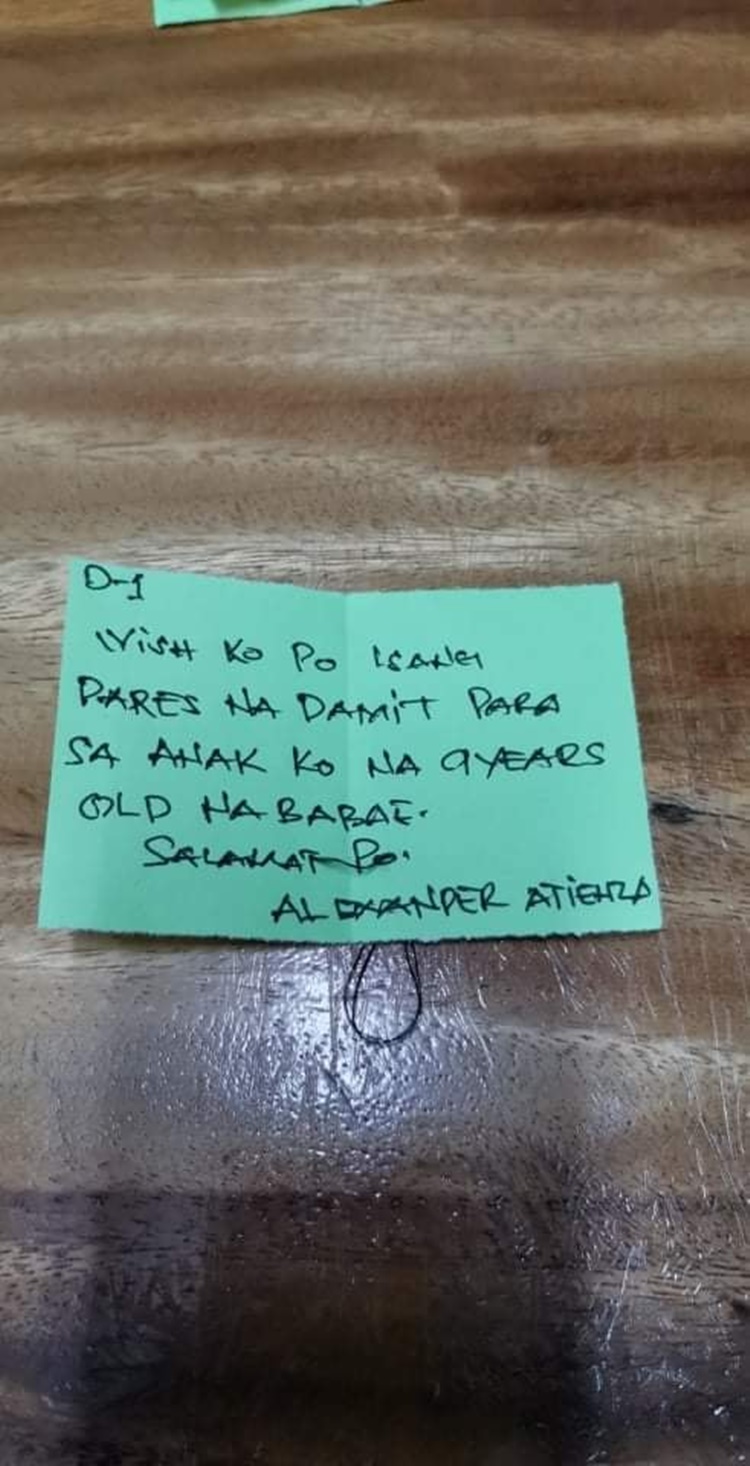 D-1
WISH KO PO ISANG
PARES NA DAMIT PARA
SA ANAK KO NA 9 YEARS
OLD NA BABAE.
SALAMAT PO.
ALEXANDER ATIENZA